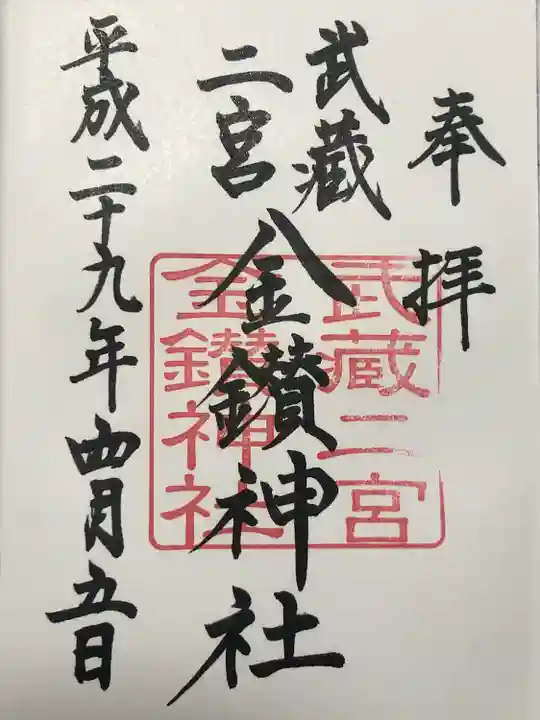 奉拝
武藏
二宮
金鑚神社
平成二十九年四月五日
武蔵二宮
金鑚神社